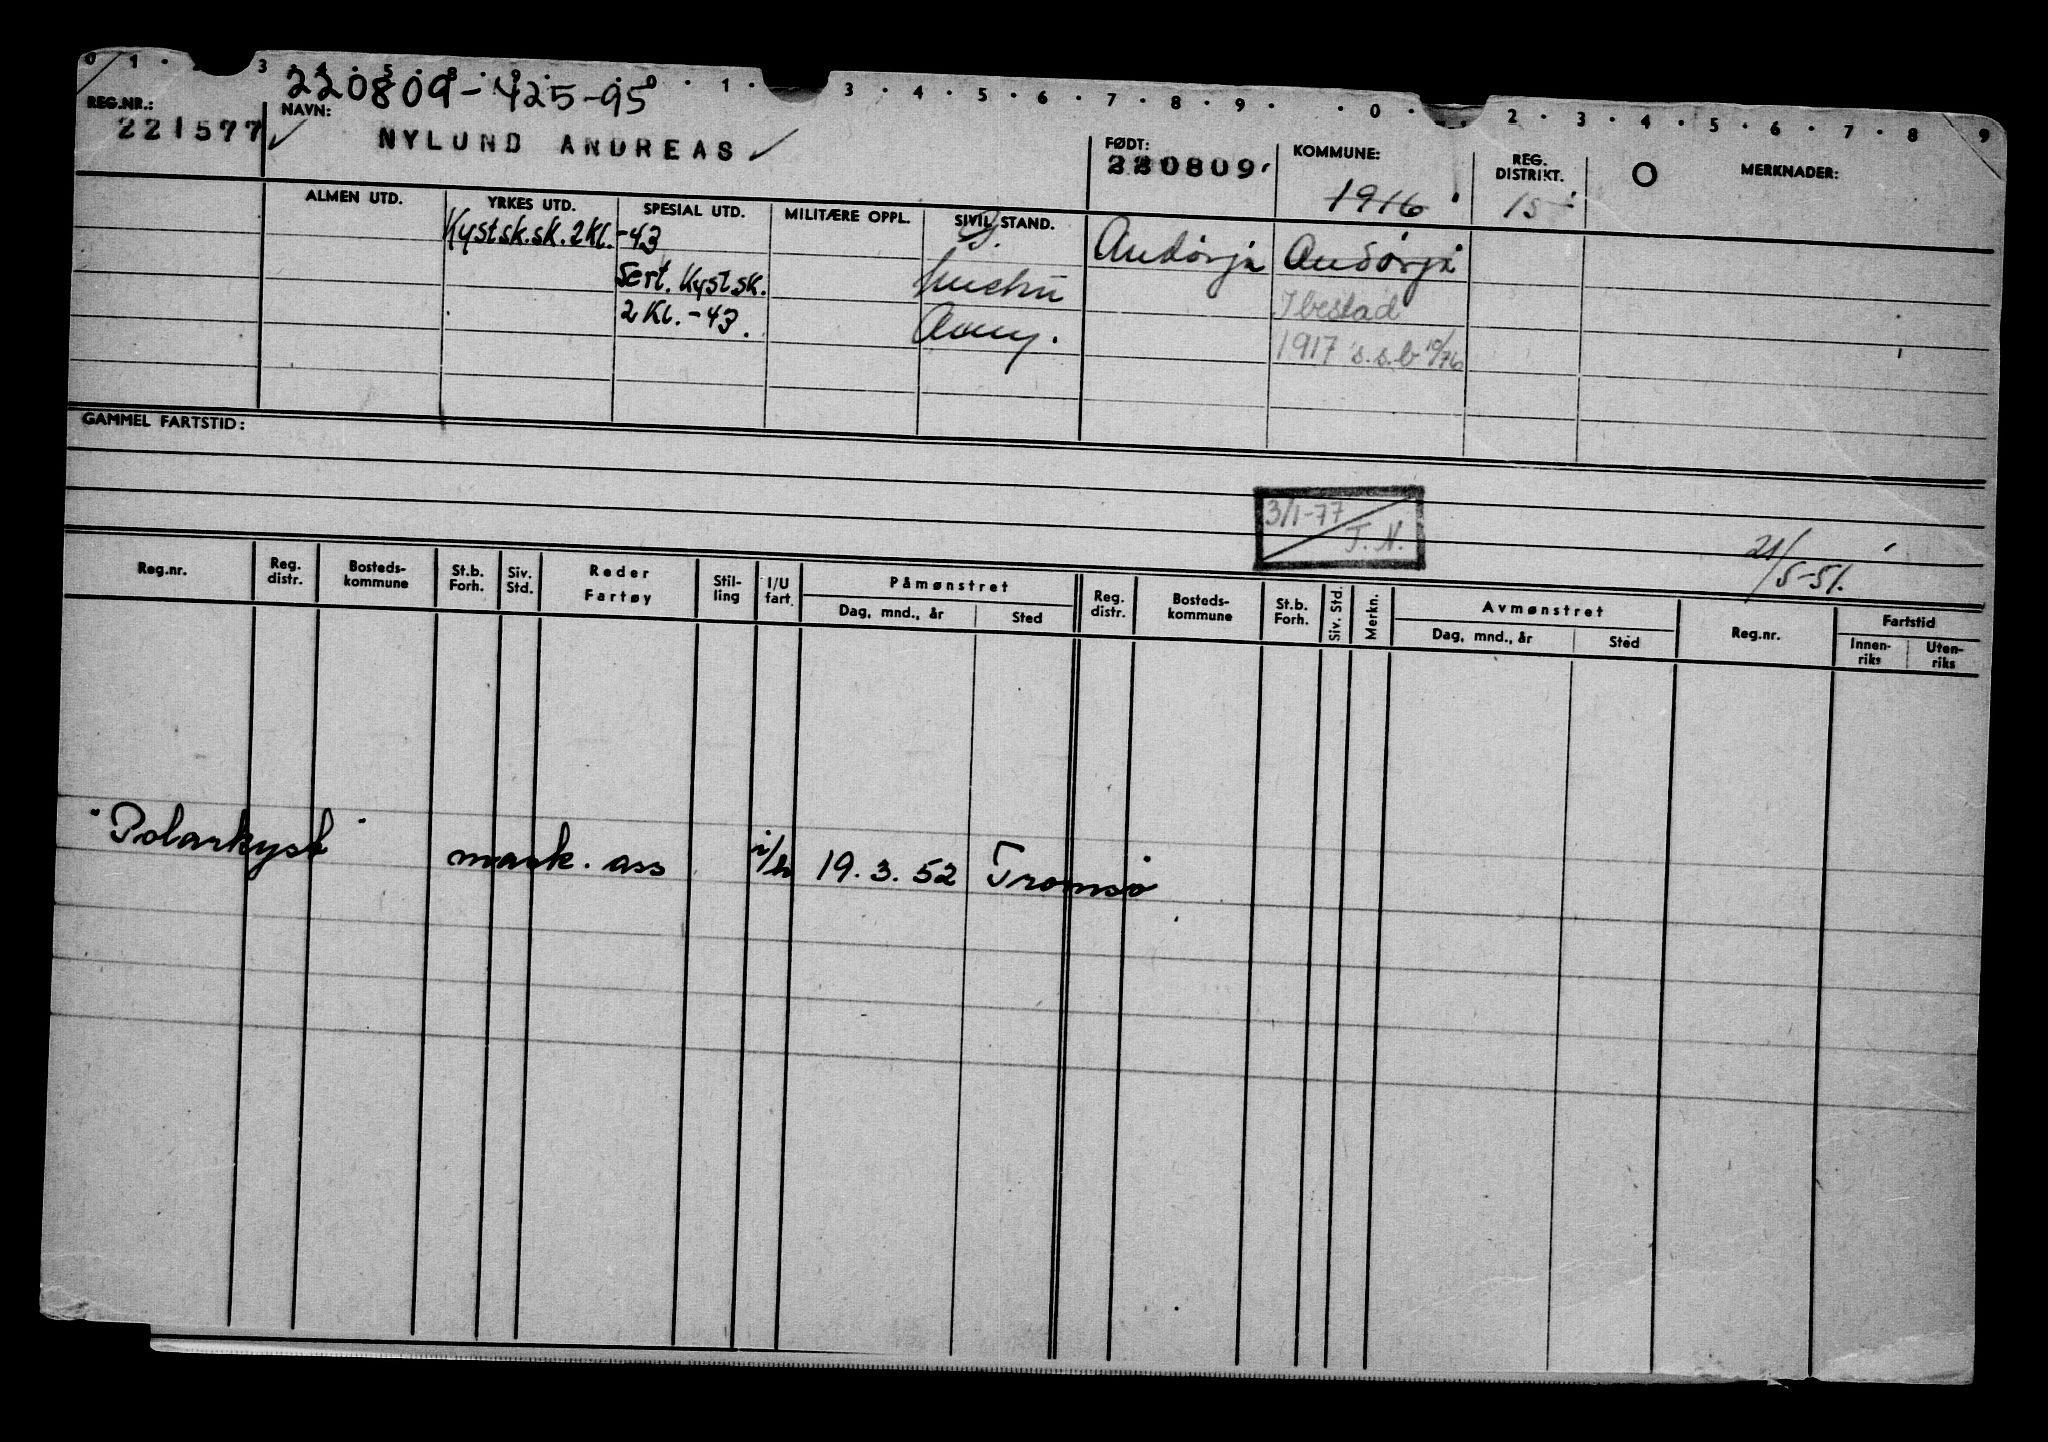 0 1 · 2 · 3 · 4 · 5 · 8 · 9 · 0 · 1 · 3 · 4 · 5 · 6 · 7 · 8 · 9 · 0 · 2 · 3 · 4 · 5 · 6 · 7 · 8 9
220809-425-95
REG.NR.: 221577 ✓
NAVN: NYLUND ANDREAS ✓
FØDT: 220809
KOMMUNE: 1916
REG. DISTRIKT. 15
O MERKNADER:
ALMEN UTD. YRKES UTD. SPESIAL UTD. MILITÆRE OPPL. SIVIL STAND.
Kystsk.sk. 2Kl. -43 Andørja Andørja
Sert. Kystsk. Ibestad
2 Kl. -43. 1917 s.s.b 10/76
GAMMEL FARTSTID:
3/1-77
T. N.
21/5-51.
Reg.nr. Reg. distr. Bosteds-kommune St.b. Forh. Siv. Std. Reder Fartøy Stil-ling I/U fart. Påmønstret Dag, mnd., år Sted Reg. distr. Bosteds-kommune St.b. Forh. Siv. Std. Merkn. Avmønstret Dag, mnd., år Sted Reg.nr. Fartstid Innen-riks Uten-riks
"Polarkyst" mask. ass 19.3.52 Tromsø